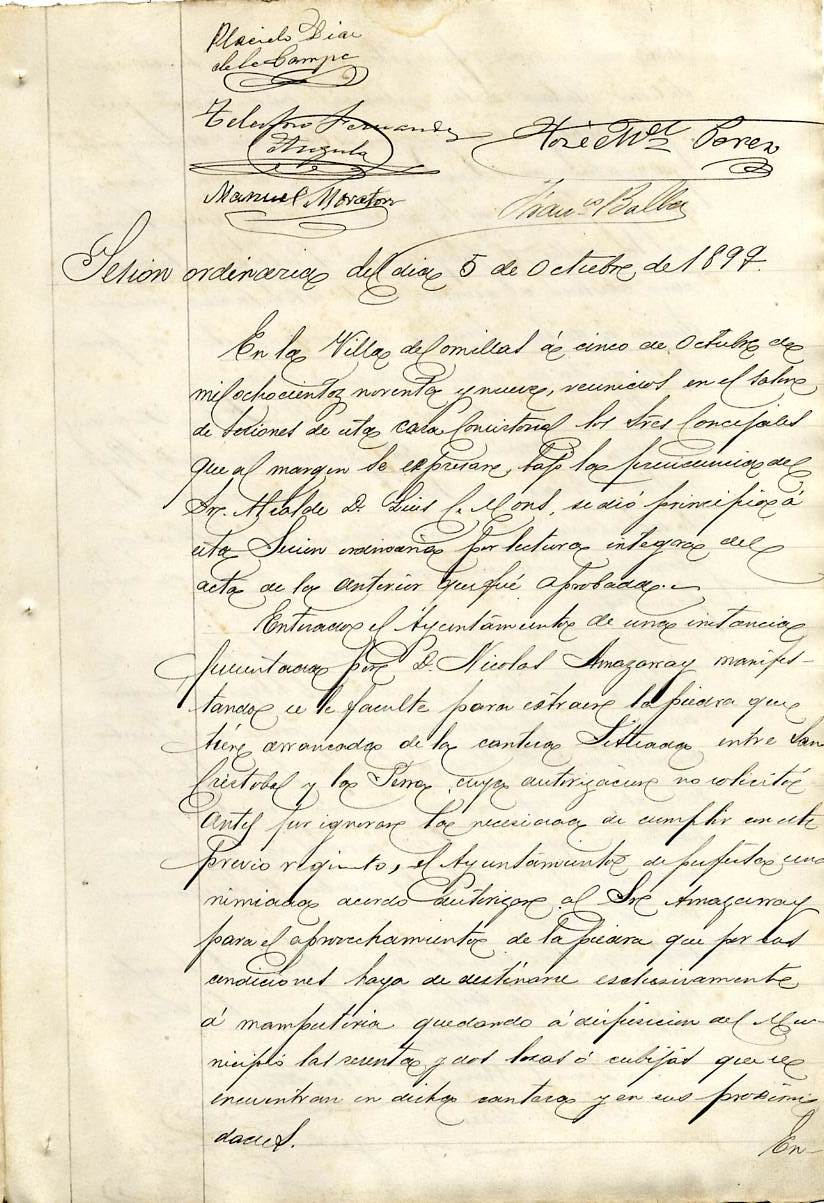 Placido Diaz
de la Campa
Celestino Fernandez
José Mel Perez
Manuel Moraton
Franco Balbas
Sesion ordinaria del dia 5 de Octubre de 1899.
En la Villa de Comillas á cinco de Octubre de
mil ochocientos noventa y nueve, reunidos en el salon
de sesiones de esta casa Consistorial los Sres Concejales
que al margen se expresan, bajo la presidencia del
Sr. Alcalde D. Luis C. Mons, se dió principio á
esta Sesion ordinaria por lectura integra del
acta de la anterior que fué aprobada.
Enterado el Ayuntamiento de una instancia
presentada por D. Nicolas Amazarray manifes-
tando se le faculte para extraer la piedra que
tiene arrancada de la cantera Sittuada entre San
Cristobal y la Perra cuya autorizacion no solicitó
antes por ignorar la necesidad de cumplir con este
previo requisito, el Ayuntamiento de perfecta una
nimidad acordó autorizar al Sr Amazarray
para el aprovechamiento de la piedra que por sus
condiciones haya de destinarse esclusivamente
á mamposteria quedando á disposicion del Mu-
nicipio las sesenta y dos losas ó cubijas que se
encuentran en dicha cantera y en sus proximi
dades.
En-